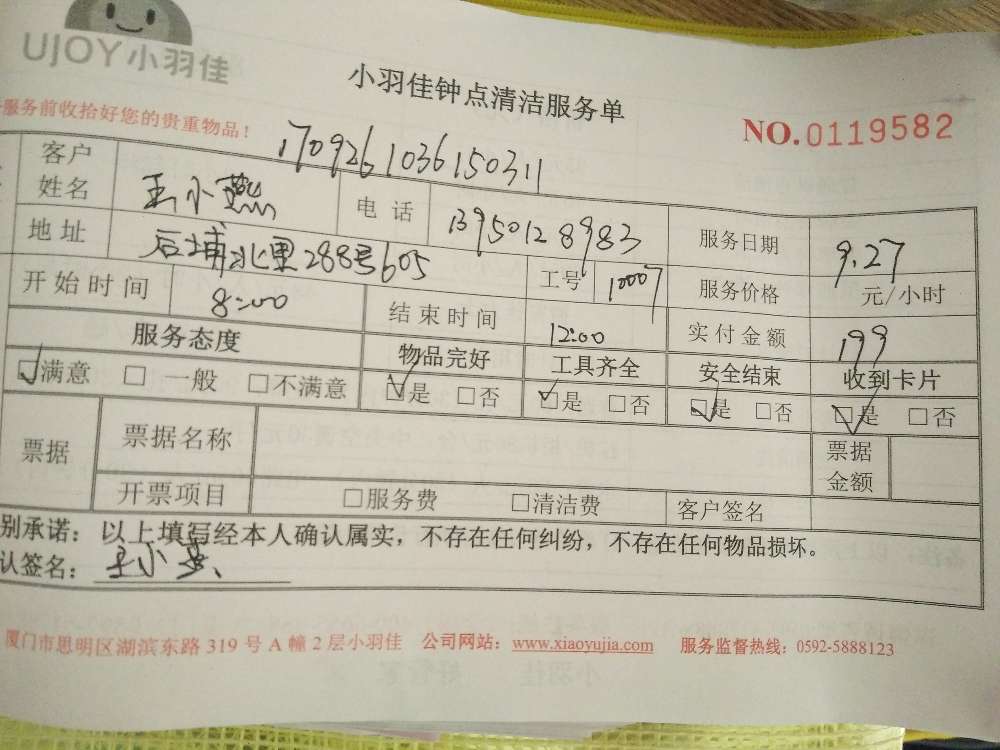 UJOY小羽佳
小羽佳钟点清洁服务单
服务前收拾好您的贵重物品！
NO.0119582
1709261036150311
客户姓名 王小燕 电话 13950128983 服务日期 9.27
地址 后埔北里288号605 工号 10007 服务价格 元/小时
开始时间 8:00 结束时间 12:00 实付金额 199
服务态度 物品完好 工具齐全 安全结束 收到卡片
☑满意 □一般 □不满意 ☑是 □否 ☑是 □否 ☑是 □否 ☑是 □否
票据 票据名称 票据金额
开票项目 □服务费 □清洁费 客户签名
别承诺：以上填写经本人确认属实，不存在任何纠纷，不存在任何物品损坏。
认签名：王小燕
厦门市思明区湖滨东路319号A幢2层小羽佳 公司网站：www.xiaoyujia.com 服务监督热线：0592-5888123